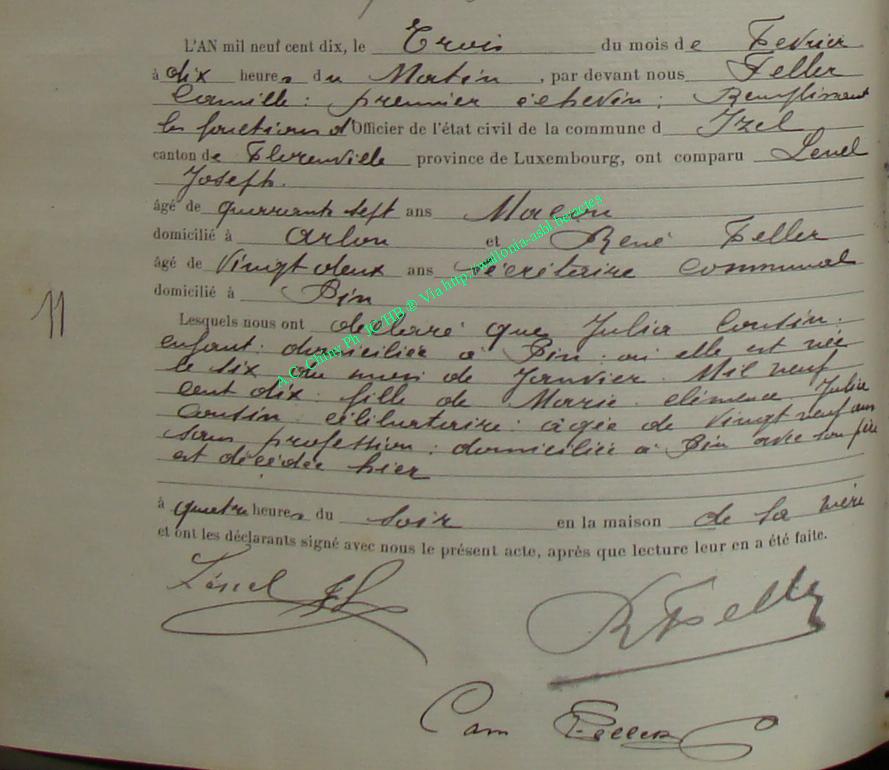 L'AN mil neuf cent dix, le Trois du mois de Fevrier
à dix heures du Matin, par devant nous Feller
Camille : premier échevin ; Remplissant
les fonctions d'Officier de l'état civil de la commune d Izel
canton de Florenville province de Luxembourg, ont comparu
Joseph.
âgé de quarante sept ans
domicilié à Arlon et René Feller
âgé de Vingt deux ans Secrétaire communal
domicilié à Pin
11
Lesquels nous ont declaré que Julia Cousin.
enfant : domiciliée à Pin : où elle est née
le six du mois de Janvier Mil neuf
cent dix. fille de Marie clémence Julia
Cousin. célibataire : agée de Vingt neuf ans
sans profession : domiciliée à Pin avec son père
est décédée hier
à quatre heures du soir en la maison de la mère
et ont les déclarants signé avec nous le présent acte, après que lecture leur en a été faite.
R Feller
Cam Feller
A.C. Chiny Ph JC HB ® Via http://wallonia-asbl.be/actes